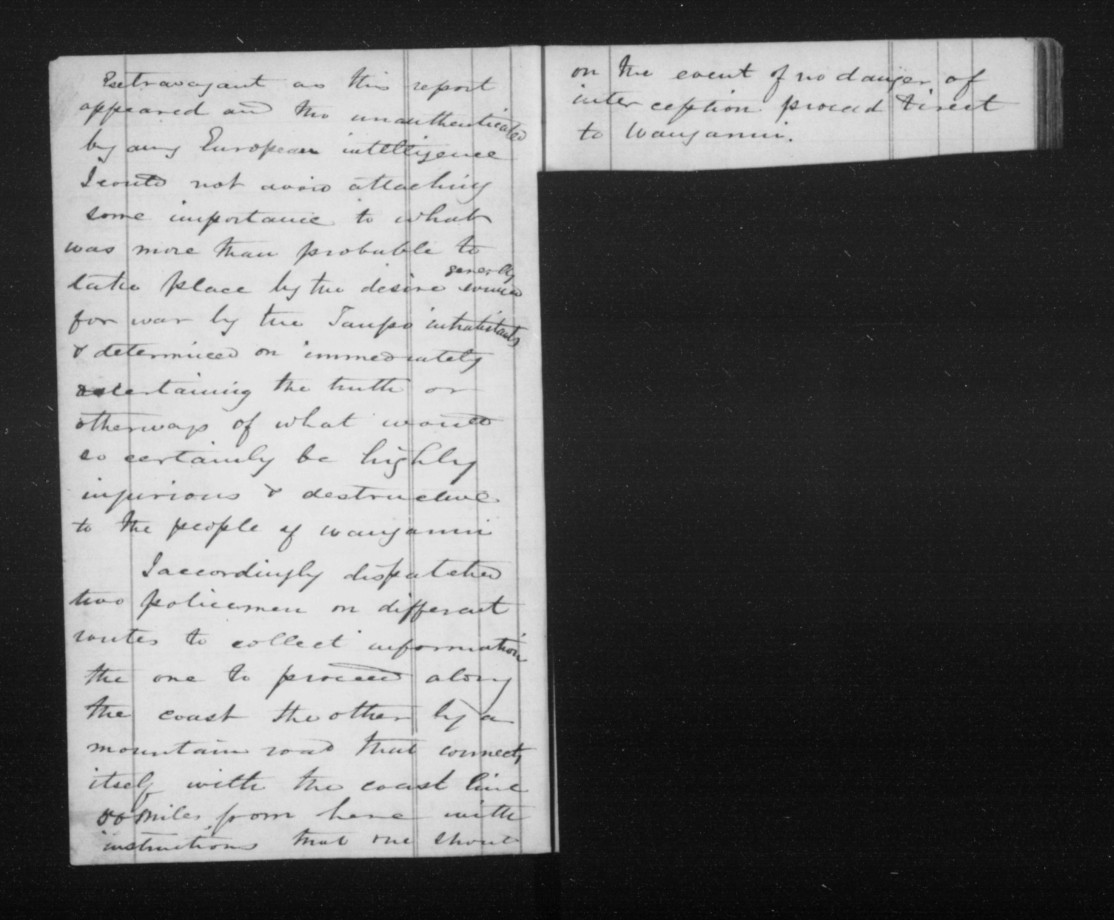 Extravagant as this report
appeared and tho unauthenticated
by any European intelligence
I could not avoid attaching
some importance to what
was more than probable to
take place by the desire generally evinced
for war by the Taupo inhabitants
& determined on immediately
ascertaining the truth or
otherways of what would
so certainly be highly
injurious & destructive
to the people of Wanganui
I accordingly dispatched
two policemen on different
routes to collect information
the one to proceed along
the coast the other by a
mountain road that connects
itself with the coast line
miles from here with
instructions that one should
on the event of no danger of
interception proceed direct
to Wanganui.